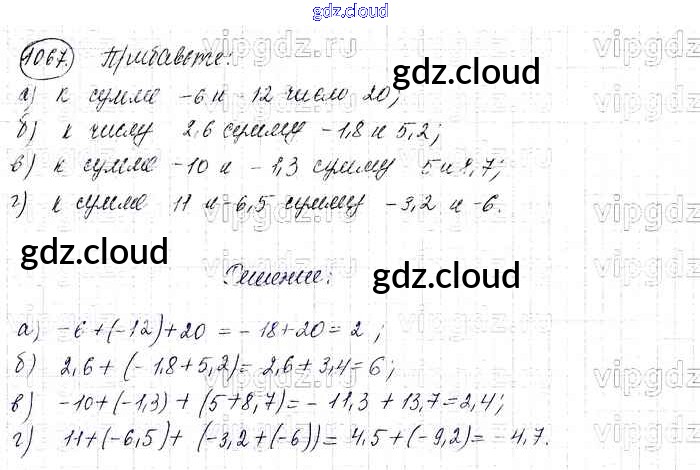 gdz.cloud
1067. Прибавьте:
а) к сумме -6 и -12 число 20;
б) к числу 2,6 сумму -1,8 и 5,2;
в) к сумме -10 и -1,3 сумму 5 и 8,7;
г) к сумме 11 и -6,5 сумму -3,2 и -6.
Решение:
а) -6+(-12)+20 = -18+20=2;
б) 2,6+(-1,8+5,2)=2,6+3,4=6;
в) -10+(-1,3)+(5+8,7)=-11,3+13,7=2,4;
г) 11+(-6,5)+(-3,2+(-6))=4,5+(-9,2)=-4,7.
gdz.cloud
gdz.cloud
gdz.cloud
gdz.cloud
vipgdz.ru